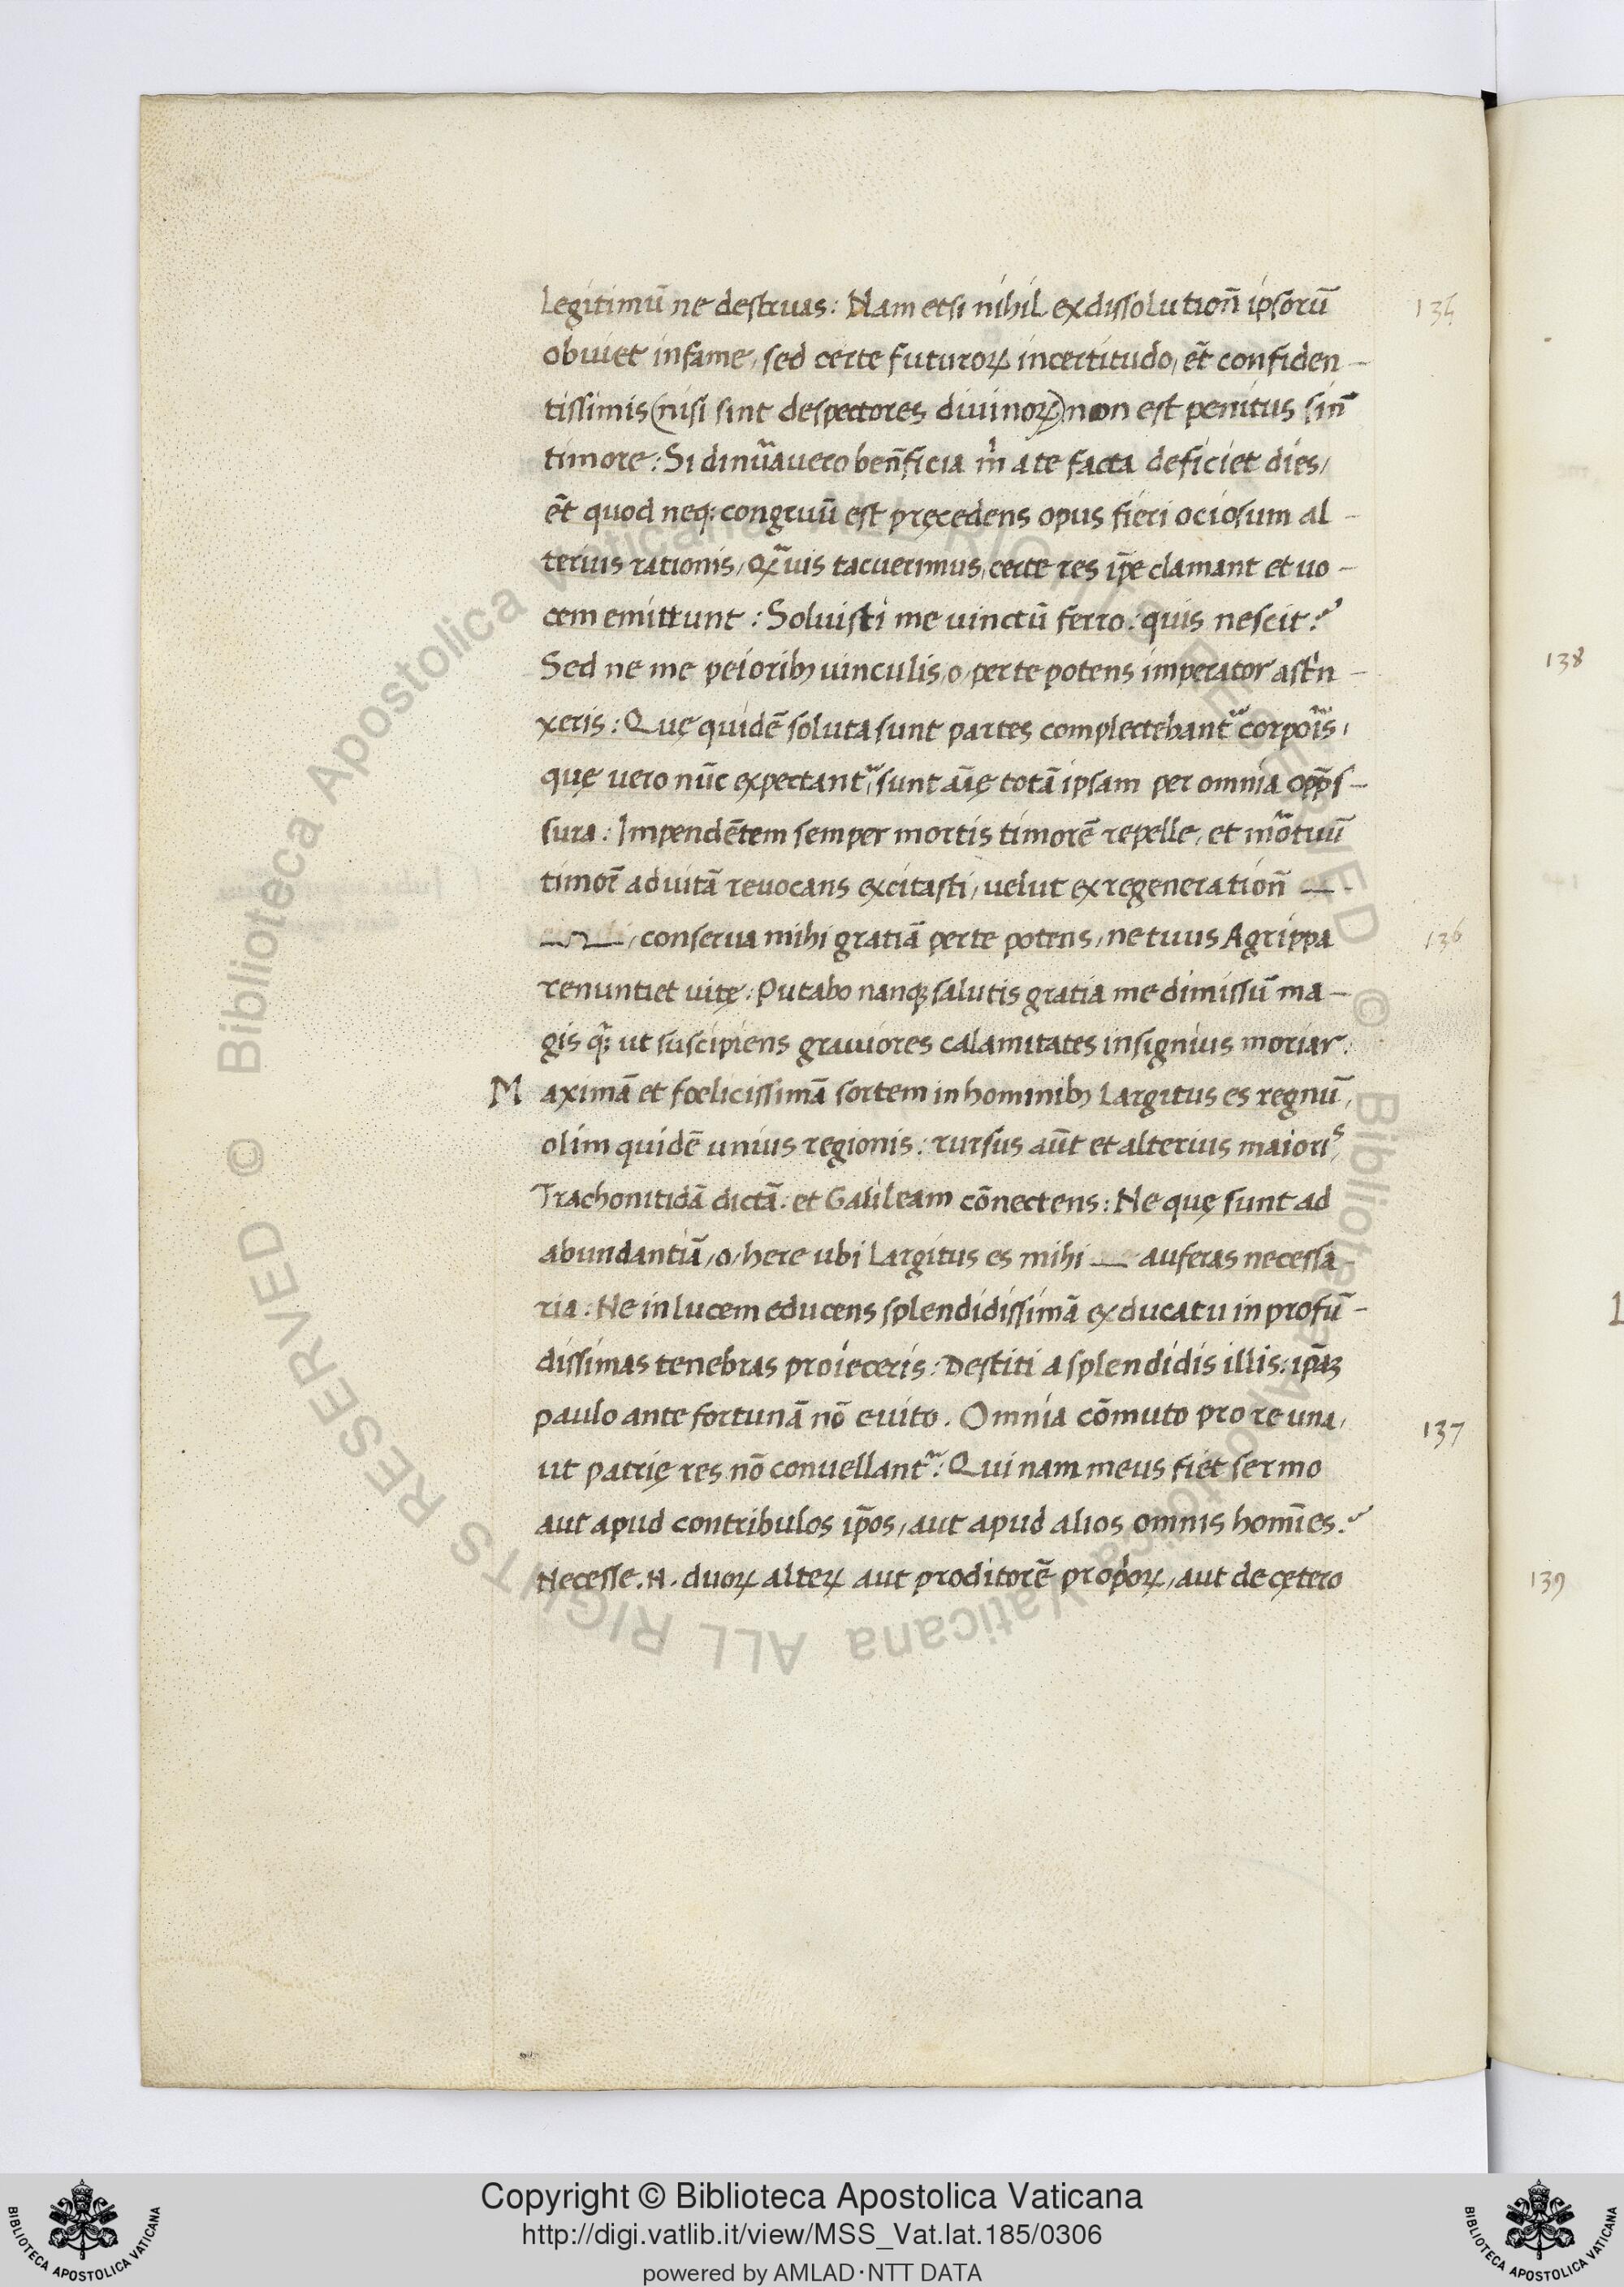 legitimū ne destruas: Nam etsi nihil ex dissolution̄ ipsorū
obuiet infame, sed certe futuroꝝ incertitudo, et̄ confiden-
tissimis (nisi sint despectores diuinoꝝ) non est penitus sin̄
timore: Si vero ben̄ficia a te facta deficiet dies,
et̄ quod neq; congruū est pręcedens opus fieri ociosum al-
terius rationis, tacuerimus, certe res ip̄e clamant et uo-
cem emittunt: Soluisti me uinctū ferro: quis nescit?
Sed ne me peioribꝫ uinculis, o, per te potens imperator
xeris: Quę quidē soluta sunt partes complectebant
quę vero nūc expectant, sunt totā ipsam per omnia
sura: Impendētem semper mortis timorē repelle, et
timor̄ ad uitā reuocans excitasti, uelut ex regeneration̄
conserua mihi gratiā per te potens, ne tuus Agrippa
renuntiet uitę: Putabo nanqꝫ salutis gratia me dimissū ma-
gis ut suscipiens grauiores calamitates insignius moriar:
Maximā et fœlicissimā sortem in hominibꝫ largitus es regnū,
olim quidē unius regionis: rursus aūt et alterius maioris,
Trachonitidā dictā: et Galileam cōnectens: Ne quę sunt ad
abundantiā, o, here ubi largitus es mihi auferas necessa-
ria: Ne in lucem educens splendidissimā ex ducatu in profū-
dissimas tenebras proieceris: Destiti a splendidis illis:
paulo ante fortunā nō euito. Omnia cōmuto pro re una,
ut patrię res nō conuellant: Qui nam meus fiet sermo
aut apud contribulos ip̄os, aut apud alios omnis homīes?
Necesse .N. duoꝝ alteꝝ aut proditorē, aut de cętero
136
137
138
139
Copyright © Biblioteca Apostolica Vaticana
http://digi.vatlib.it/view/MSS_Vat.lat.185/0306
powered by AMLAD·NTT DATA
BIBLIOTECA APOSTOLICA VATICANA
BIBLIOTECA APOSTOLICA VATICANA
© Biblioteca Apostolica Vaticana ALL RIGHTS RESERVED
© Biblioteca Apostolica Vaticana ALL RIGHTS RESERVED